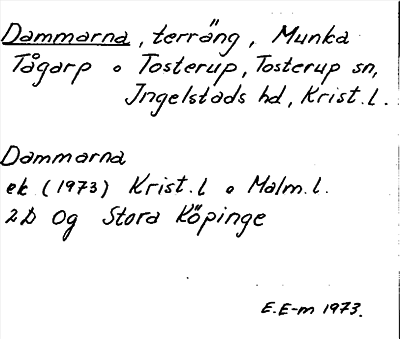 Dammarna, terräng, Munka
Tågarp o Tosterup, Tosterup sn,
Ingelstads hd, Krist.l.
Dammarna
ek (1973) Krist.l o Malm.l.
2D 0g Stora Köpinge
E.E-m 1973.